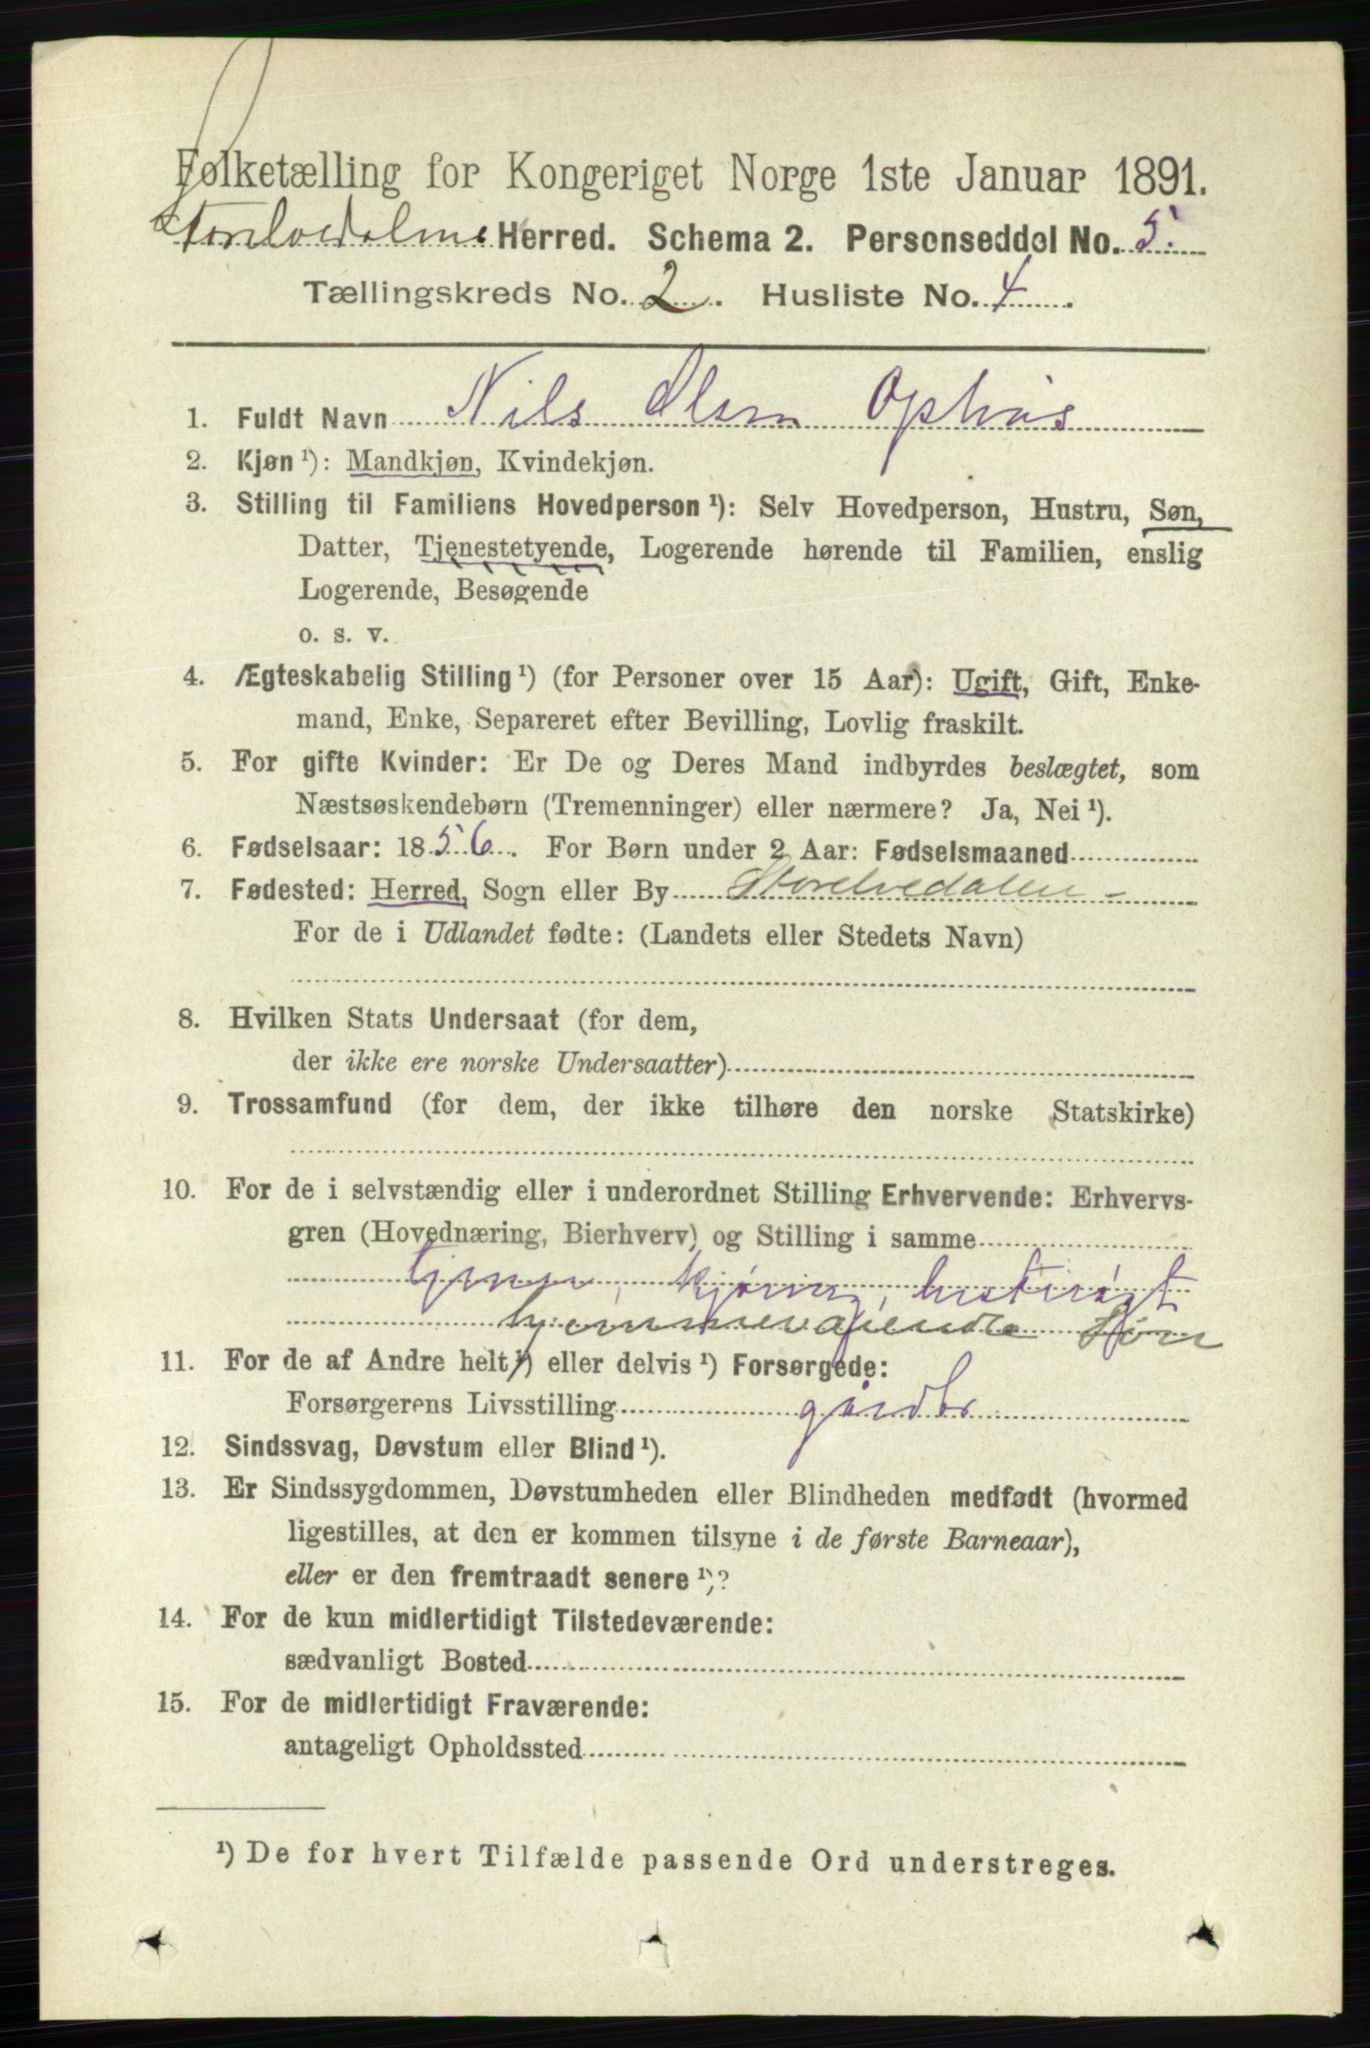 Folketælling for Kongeriget Norge 1ste Januar 1891.
Storelvedalens Herred. Schema 2. Personseddel No. 5.
Tællingskreds No. 2. Husliste No. 4.
1. Fuldt Navn Nils Olsen Ophus
2. Kjøn ¹): Mandkjøn, Kvindekjøn.
3. Stilling til Familiens Hovedperson ¹): Selv Hovedperson, Hustru, Søn,
Datter, Tjenestetyende, Logerende hørende til Familien, enslig
Logerende, Besøgende
o. s. v.
4. Ægteskabelig Stilling ¹) (for Personer over 15 Aar): Ugift, Gift, Enke-
mand, Enke, Separeret efter Bevilling, Lovlig fraskilt.
5. For gifte Kvinder: Er De og Deres Mand indbyrdes beslægtet, som
Næstsøskendebørn (Tremenninger) eller nærmere? Ja, Nei ¹).
6. Fødselsaar: 1856. For Børn under 2 Aar: Fødselsmaaned
7. Fødested: Herred, Sogn eller By Storelvedalen -
For de i Udlandet fødte: (Landets eller Stedets Navn)
8. Hvilken Stats Undersaat (for dem,
der ikke ere norske Undersaatter)
9. Trossamfund (for dem, der ikke tilhøre den norske Statskirke)
10. For de i selvstændig eller i underordnet Stilling Erhvervende: Erhvervs-
gren (Hovednæring, Bierhverv) og Stilling i samme
tjener, kjøring, hestrøgt
hjemmeværende Søn
11. For de af Andre helt ¹) eller delvis ¹) Forsørgede:
Forsørgerens Livsstilling gårdbr
12. Sindssvag, Døvstum eller Blind ¹).
13. Er Sindssygdommen, Døvstumheden eller Blindheden medfødt (hvormed
ligestilles, at den er kommen tilsyne i de første Barneaar),
eller er den fremtraadt senere ¹)?
14. For de kun midlertidigt Tilstedeværende:
sædvanligt Bosted
15. For de midlertidigt Fraværende:
antageligt Opholdssted
¹) De for hvert Tilfælde passende Ord understreges.